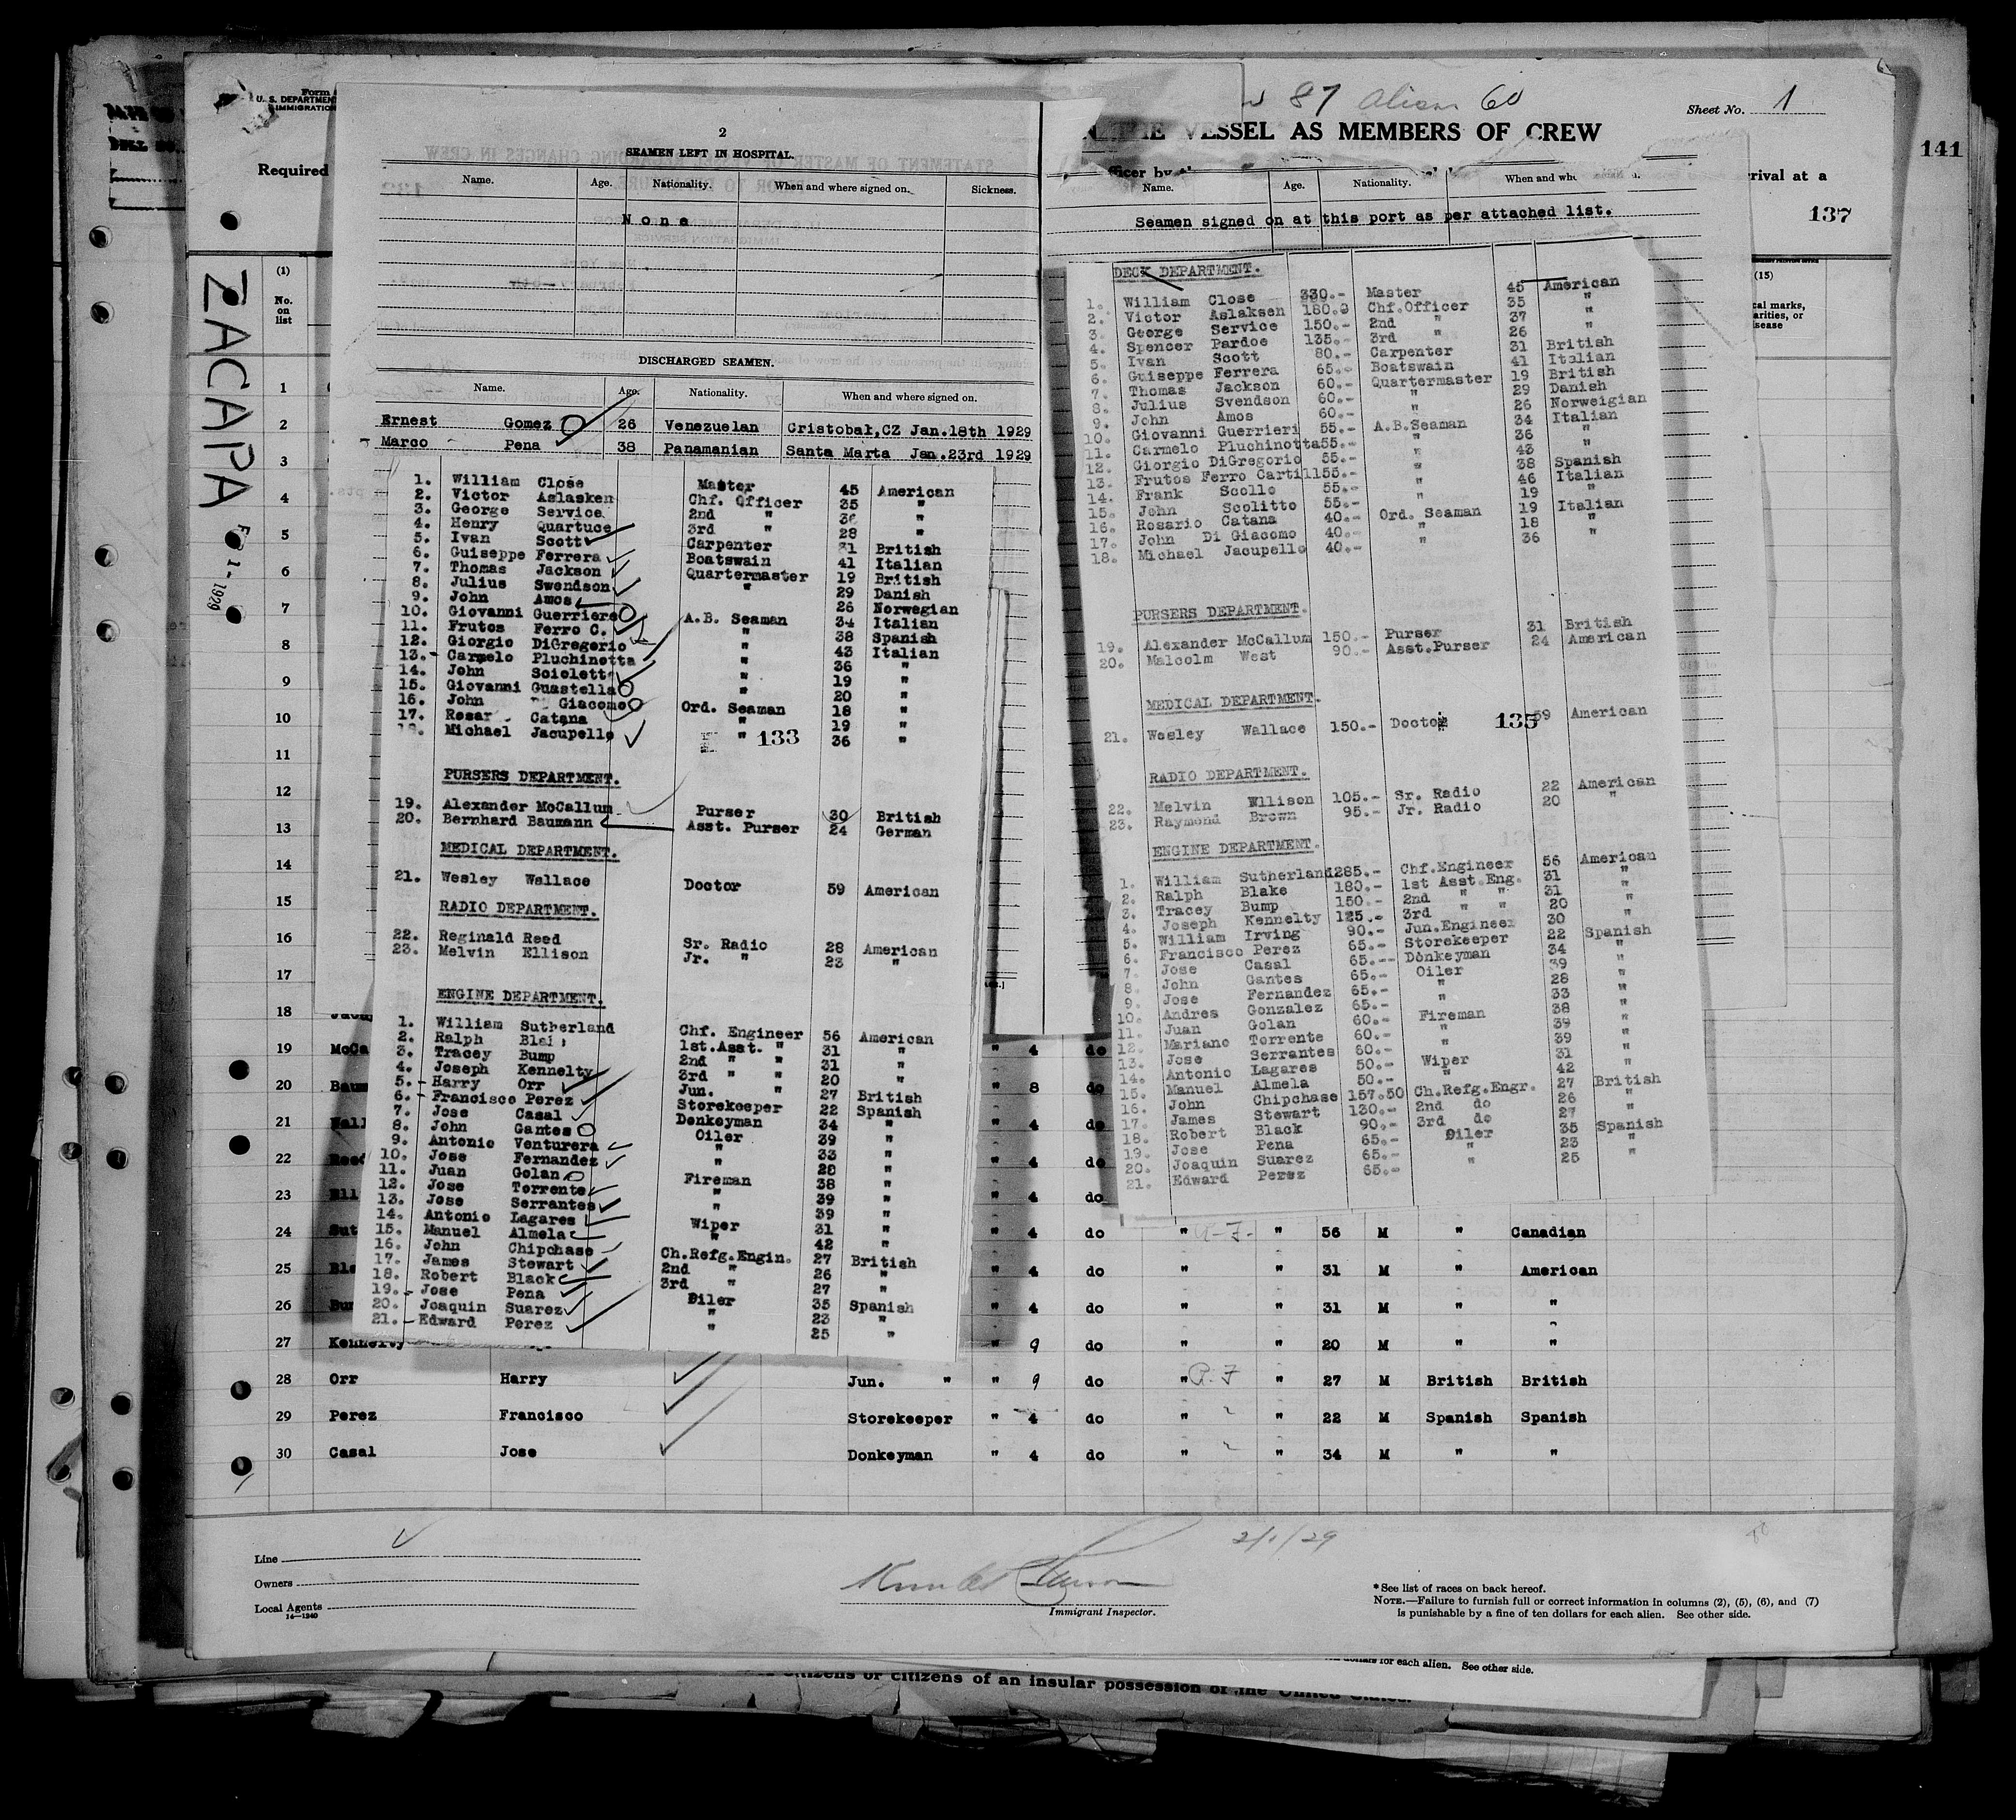 Form
U. S. DEPARTMENT
IMMIGRATION
Required
87 Alien 60
Sheet No. 1
THE VESSEL AS MEMBERS OF CREW
officer by the
arrival at a
141
137
ZACAPA
Feb 1 - 1929
(1)
No.
on
list
(15)
cal marks,
arities, or
disease
2
SEAMEN LEFT IN HOSPITAL.
Name. Age. Nationality. When and where signed on. Sickness.
None
DISCHARGED SEAMEN.
Name. Age. Nationality. When and where signed on.
Ernest Gomez 26 Venezuelan Cristobal,CZ Jan.18th 1929
Marco Pena 38 Panamanian Santa Marta Jan.23rd 1929
1. William Close Master 45 American
2. Victor Aslasken Chf. Officer 35 "
3. George Service 2nd " 36 "
4. Henry Quartuce 3rd " 28 "
5. Ivan Scott Carpenter 31 British
6. Guiseppe Ferrera Boatswain 41 Italian
7. Thomas Jackson Quartermaster 19 British
8. Julius Swendson " 29 Danish
9. John Amos 26 Norwegian
10. Giovanni Guerriero A.B. Seaman 34 Italian
11. Frutos Ferro C. " 38 Spanish
12. Giorgio DiGregorio " 43 Italian
13. Carmelo Pluchinotta " 36 "
14. John Scielett " 19 "
15. Giovanni Guastella " 20 "
16. John Giacomo Ord. Seaman 18 "
17. Rosar Catana " 19 "
Michael Jacupello " 36 "
133
PURSERS DEPARTMENT.
19. Alexander McCallum Purser 30 British
20. Bernhard Baumann Asst. Purser 24 German
MEDICAL DEPARTMENT.
21. Wesley Wallace Doctor 59 American
RADIO DEPARTMENT.
22. Reginald Reed Sr. Radio 28 American
23. Melvin Ellison Jr. " 23 "
ENGINE DEPARTMENT.
1. William Sutherland Chf. Engineer 56 American
2. Ralph 1st.Asst. " 31 "
3. Tracey Bump 2nd " " 31 "
4. Joseph Kennelty 3rd " " 20 "
5. Harry Orr Jun. " 27 British
6. Francisco Perez Storekeeper 22 Spanish
7. Jose Casal Donkeyman 34 "
8. John Gantes Oiler 39 "
9. Antonio Venturera " 33 "
10. Jose Fernandez " 28 "
11. Juan Golan Fireman 38 "
12. Jose Torrente " 39 "
13. Jose Serrantes " 39 "
14. Antonio Lagares Wiper 31 "
15. Manuel Almela " 42 "
16. John Chipchase Ch.Refg.Engin. 27 British
17. James Stewart 2nd " 26 "
18. Robert Black 3rd " 27 "
19. Jose Pena Oiler 35 Spanish
20. Joaquin Suarez " 23 "
21. Edward Perez " 25 "
Name. Age. Nationality. When and
Seamen signed on at this port as per attached list.
DECK DEPARTMENT.
1. William Close 330.- Master 45 American
2. Victor Aslaksen 180.0 Chf.Officer 35 "
3. George Service 150.- 2nd " 37 "
4. Spencer Pardoe 135.- 3rd " 26 "
5. Ivan Scott 80.- Carpenter 31 British
6. Guiseppe Ferrera 65.- Boatswain 41 Italian
7. Thomas Jackson 60.- Quartermaster 19 British
8. Julius Svendson 60.- " 29 Danish
9. John Amos 60.- " 26 Norweigian
10. Giovanni Guerrieri 55.- A.B.Seaman 34 Italian
11. Carmelo Pluchinotta 55.- " 36 "
12. Giorgio DiGregorio 55.- " 43 "
13. Frutos Ferro Cartill 55.- " 38 Spanish
14. Frank Scollo 55.- " 46 Italian
15. John Scolitto 55.- " 19 "
16. Rosario Catana 40.- Ord. Seaman 19 Italian
17. John Di Giacomo 40.- " 18 "
18. Michael Jacupello 40.- " 36 "
PURSERS DEPARTMENT.
19. Alexander McCallum 150.- Purser 31 British
20. Malcolm West 90.- Asst.Purser 24 American
MEDICAL DEPARTMENT.
21. Wesley Wallace 150.- Doctor 59 American
135
RADIO DEPARTMENT.
22. Melvin Ellison 105.- Sr. Radio 22 American
23. Raymond Brown 95.- Jr. Radio 20 "
ENGINE DEPARTMENT.
1. William Sutherland 285.- Chf.Engineer 56 American
2. Ralph Blake 180.- 1st Asst.Eng. 31 "
3. Tracey Bump 150.- 2nd " " 31 "
4. Joseph Kennelty 125.- 3rd " " 20 "
5. William Irving 90.- Jun.Engineer 30 "
6. Francisco Perez 65.- Storekeeper 22 Spanish
7. Jose Casal 65.-- Donkeyman 34 "
8. John Gantes 65.- Oiler 39 "
9. Jose Fernandez 65.- " 28 "
10. Andres Gonzalez 65.- " 33 "
11. Juan Golan 60.- Fireman 38 "
12. Mariano Torrente 60.- " 39 "
13. Jose Serrantes 60.- " 39 "
14. Antonio Lagares 50.- Wiper 31 "
15. Manuel Almela 50.- " 42 "
16. John Chipchase 157.50 Ch.Refg.Engr. 27 British
17. James Stewart 130.- 2nd do 26 "
18. Robert Black 90.- 3rd do 27 "
19. Jose Pena 65.- Oiler 35 Spanish
20. Joaquin Suarez 65.- " 23 "
21. Edward Perez 65.- " 25 "
1
2
3
4
5
6
7
8
9
10
11
12
13
14
15
16
17
18
19 McCa " 4 do
20 Baum " 8 do
21 Wall " 4 do
22 Reed " 4 do
23 Ell " 4 do
24 Sut " 4 do " " 56 M " Canadian
25 Bla " 4 do " " 31 M " American
26 Bum " 4 do " " 31 M " "
27 Kennelty " 9 do " " 20 M " "
28 Orr Harry Jun. " " 9 do " " 27 M British British
29 Perez Francisco Storekeeper " 4 do " " 22 M Spanish Spanish
30 Casal Jose Donkeyman " 4 do " " 34 M " "
Line
Owners
Local Agents
14—1240
2/1/29
Immigrant Inspector.
*See list of races on back hereof.
NOTE.—Failure to furnish full or correct information in columns (2), (5), (6), and (7)
is punishable by a fine of ten dollars for each alien. See other side.
dollars for each alien. See other side.
citizens or citizens of an insular possession of the United States.